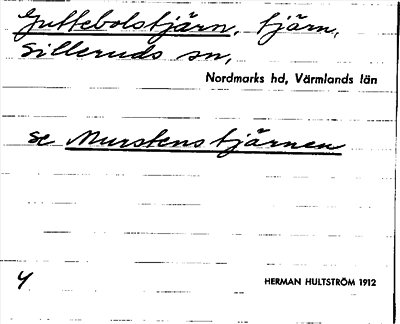 Guttebolstjärn, tjärn,
Silleruds sn,
Nordmarks hd, Värmlands län
se Murstenstjärnen
4
HERMAN HULTSTRÖM 1912